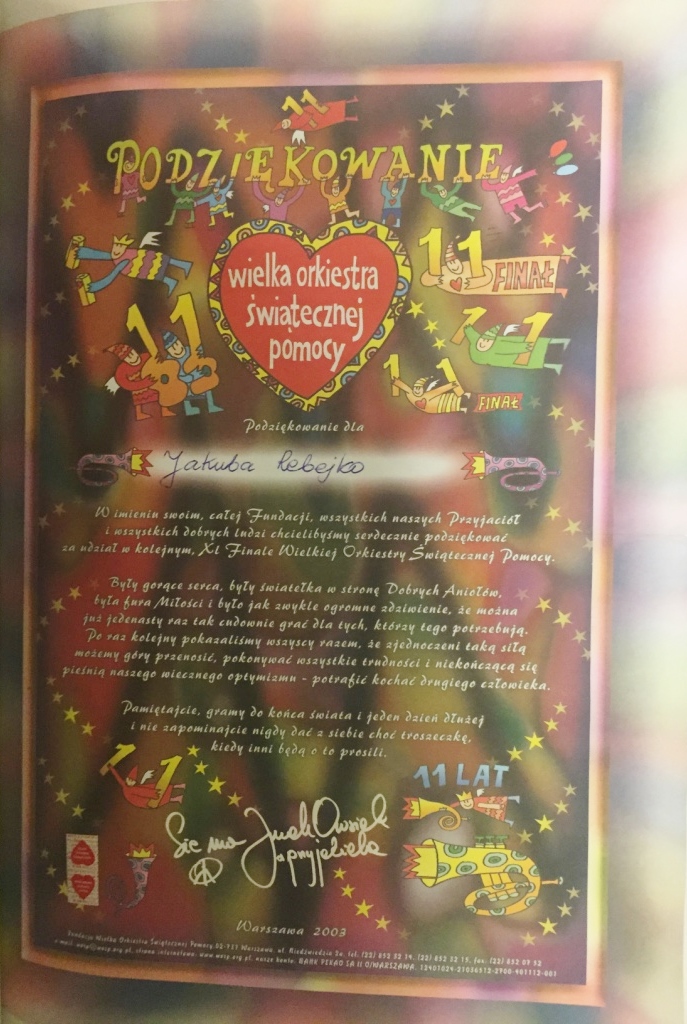 11
PODZIĘKOWANIE
wielka orkiestra
świątecznej
pomocy
11 FINAŁ
11
11
11 FINAŁ
Podziękowanie dla
Jakuba Rebejko
W imieniu swoim, całej Fundacji, wszystkich naszych Przyjaciół
i wszystkich dobrych ludzi chcielibyśmy serdecznie podziękować
za udział w kolejnym, XI Finale Wielkiej Orkiestry Świątecznej Pomocy.
Były gorące serca, były światełka w stronę Dobrych Aniołów,
była fura Miłości i było jak zwykle ogromne zdziwienie, że można
już jedenasty raz tak cudownie grać dla tych, którzy tego potrzebują.
Po raz kolejny pokazaliśmy wszyscy razem, że zjednoczeni taką siłą
możemy góry przenosić, pokonywać wszystkie trudności i niekończącą się
pieśnią naszego wiecznego optymizmu - potrafić kochać drugiego człowieka.
Pamiętajcie, gramy do końca świata i jeden dzień dłużej
i nie zapominajcie nigdy dać z siebie choć troszeczkę,
kiedy inni będą o to prosili.
11
11 LAT
Sie ma
Warszawa 2003
Fundacja Wielka Orkiestra Świątecznej Pomocy, 02-711 Warszawa, ul. Niedźwiedzia 2a, tel. (22) 852 32 14, (22) 852 32 15, fax: (22) 852 09 52
www.wosp.org.pl, nasze konto: BANK PEKAO SA II O/WARSZAWA,